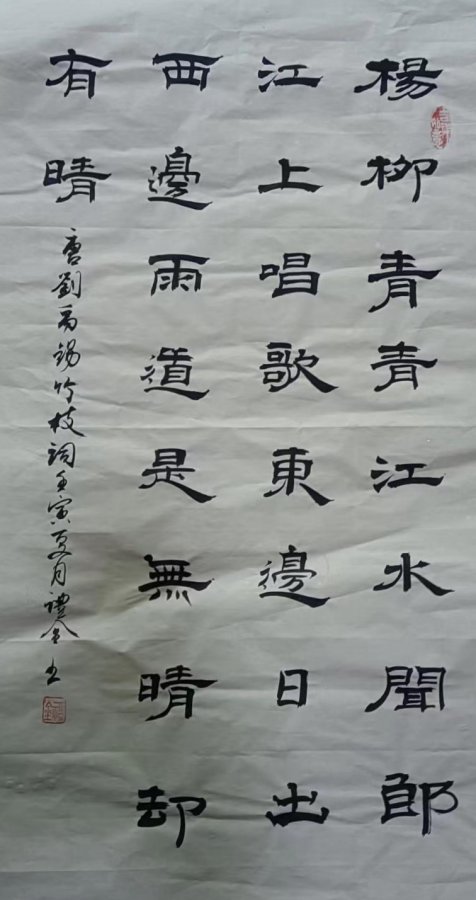 楊柳青青江水聞郎
江上唱歌東邊日出
西邊雨道是無晴却
有晴
唐劉禹錫竹枝詞壬寅夏月禮书